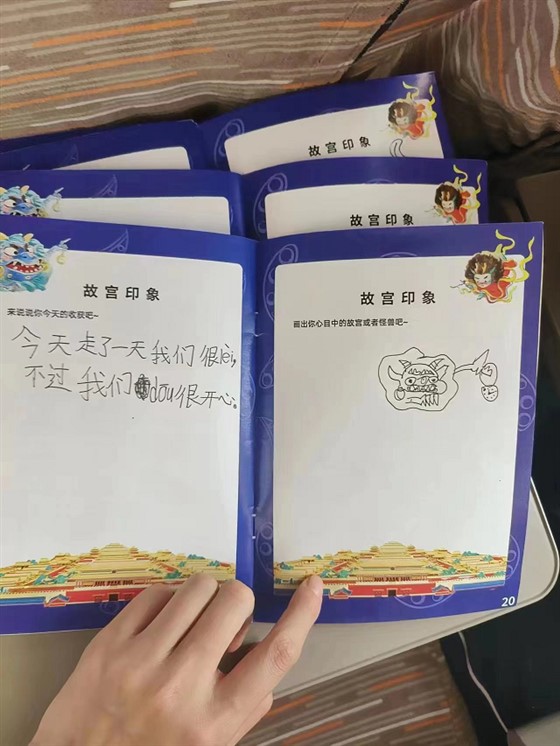 故宫印象
故宫印象
故宫印象
来说说你今天的收获吧~
今天走了一天我们很lèi,
不过我们dou很开心。
故宫印象
画出你心目中的故宫或者怪兽吧~
20